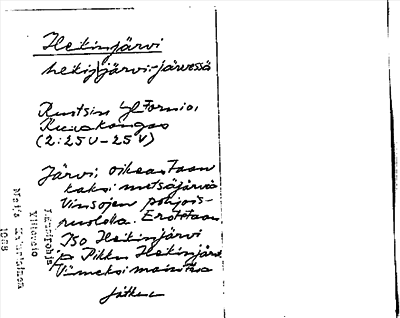 Hekinjärvi
hekiɲjärvi:-järvessä
Ruotsin Yl Tornio,
Kuivakangas
(2:25U-25V)
Järvi; oikeastaan
kaksi metsäjärviä
Vinsojen pohjois-
puolella. Erotetaan
Iso Hekinjärvi
ja Pikku Hekinjärvi
Viimeksi mainittua
jatkuu
Ylitornio
1958